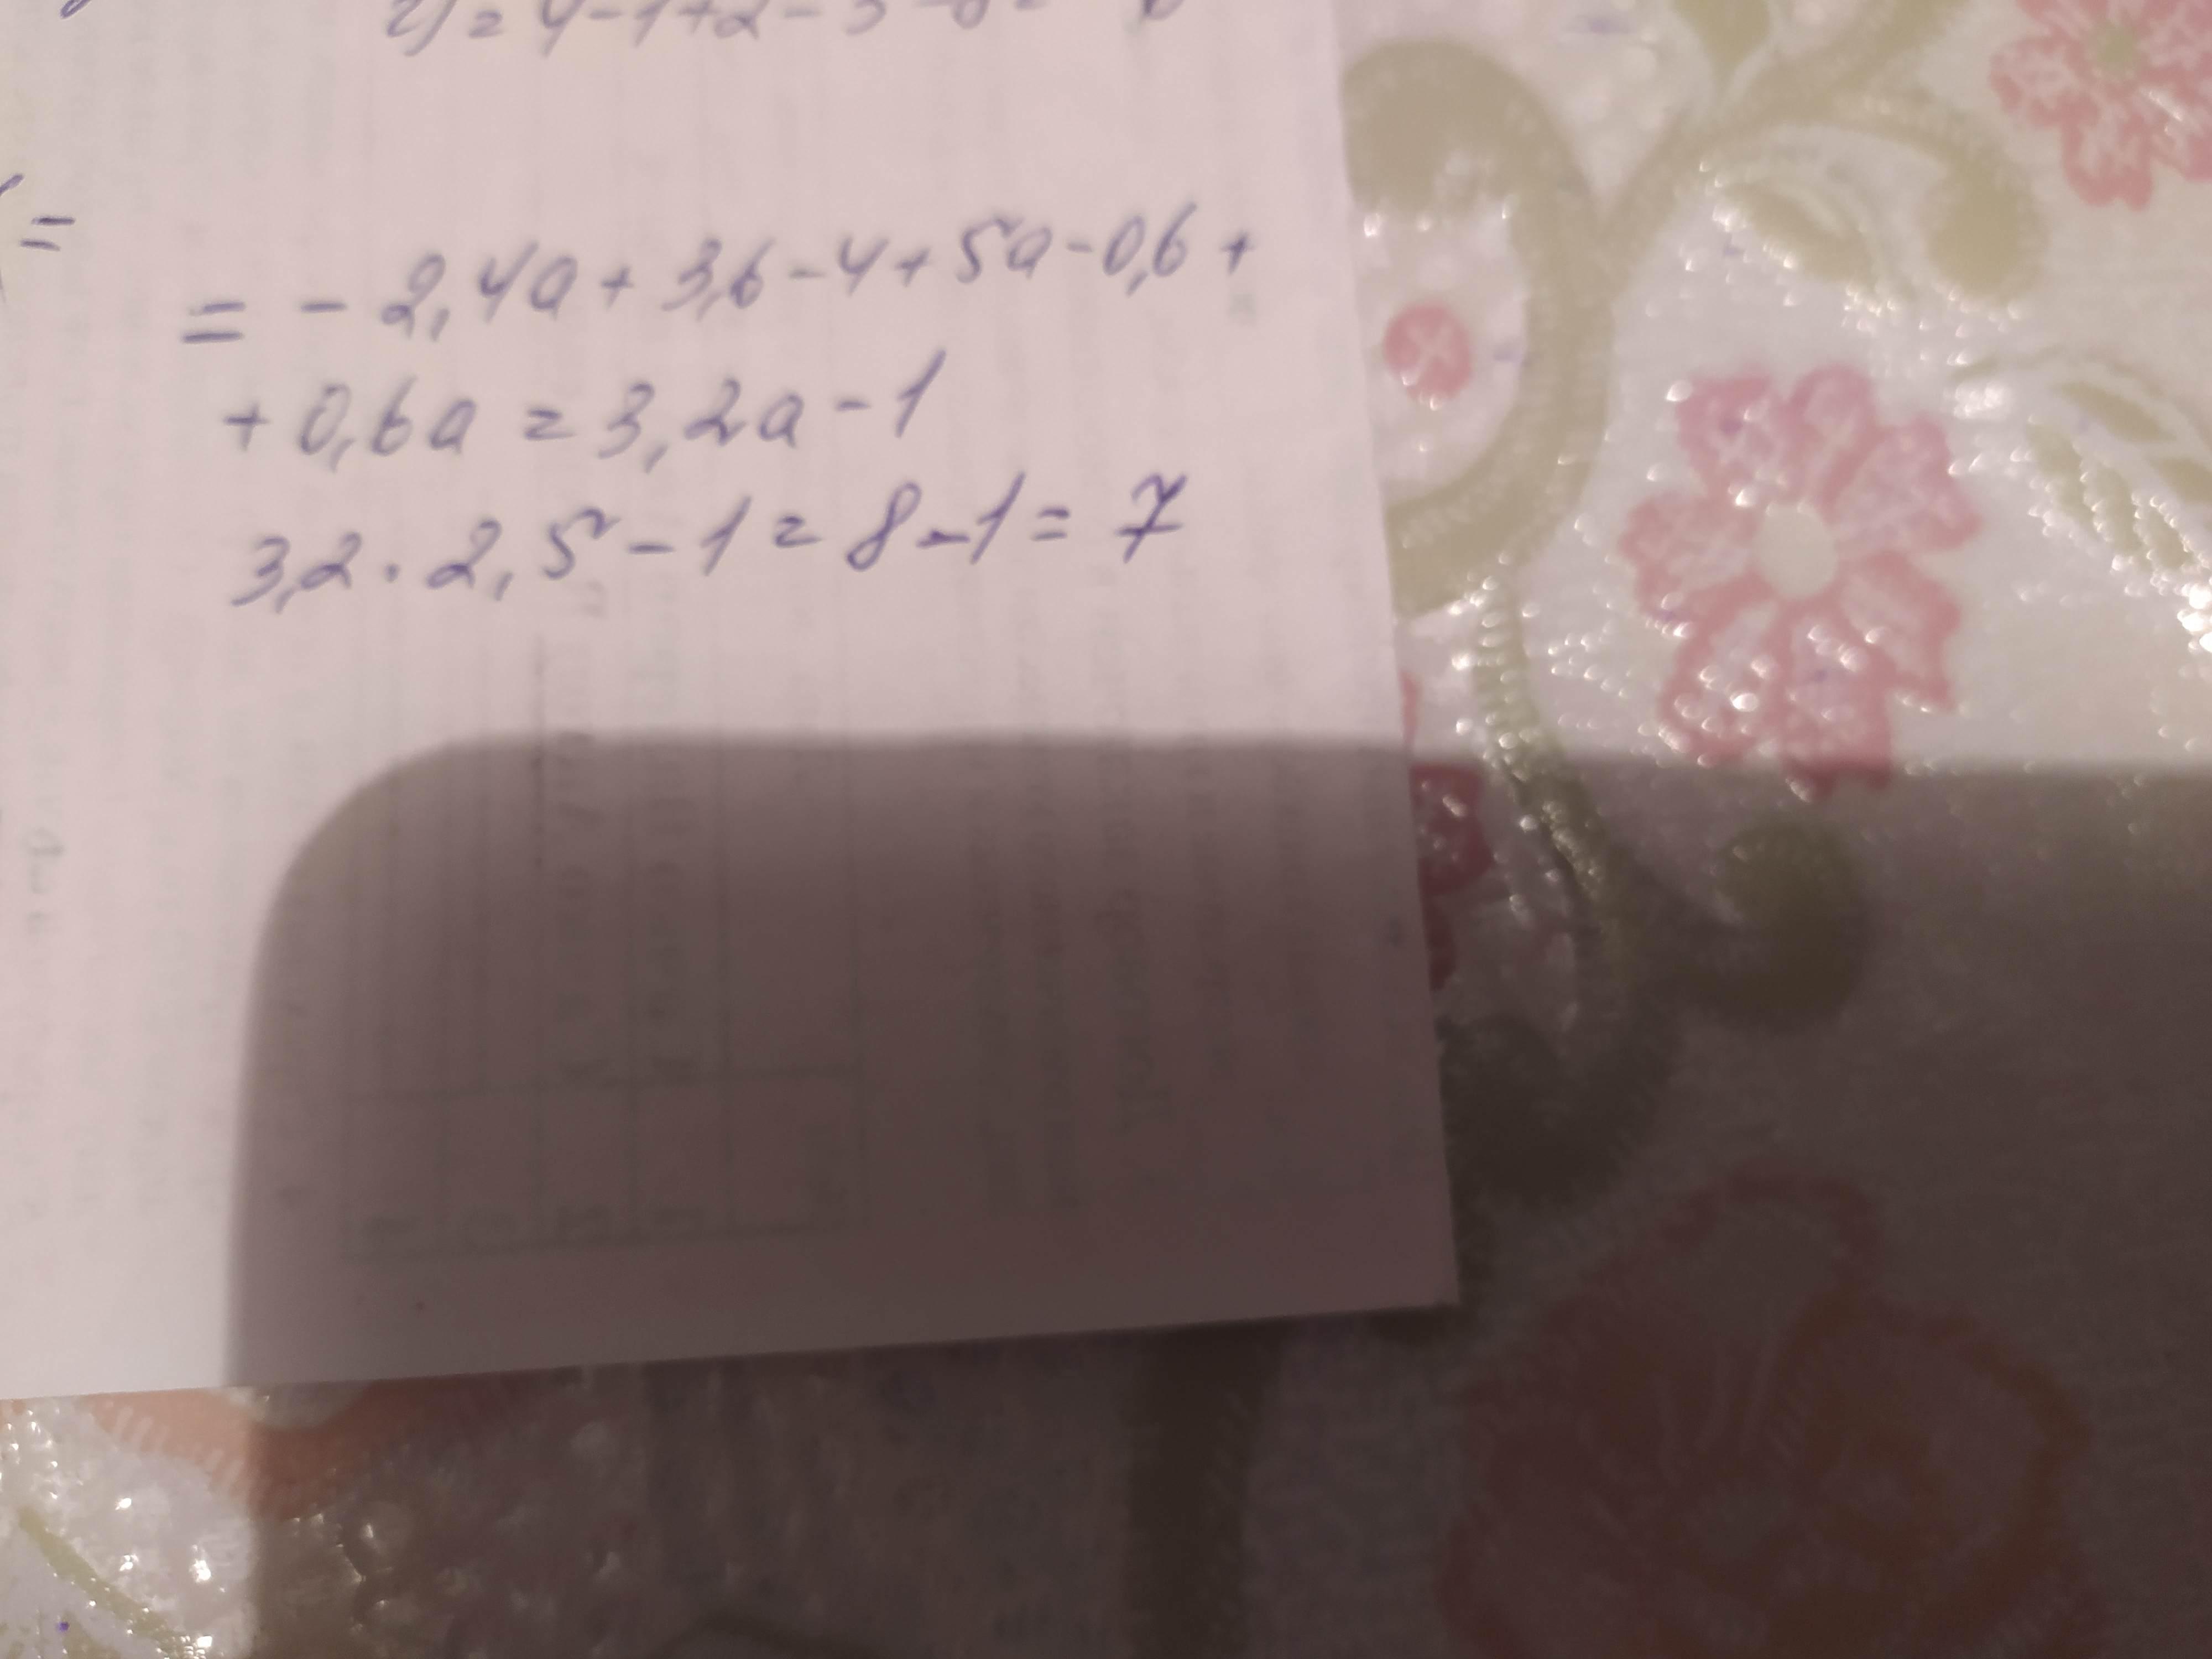 =
= - 2,4a + 3,6 - 4 + 5a - 0,6 +
+ 0,6a = 3,2a - 1
3,2 · 2,5 - 1 = 8 - 1 = 7